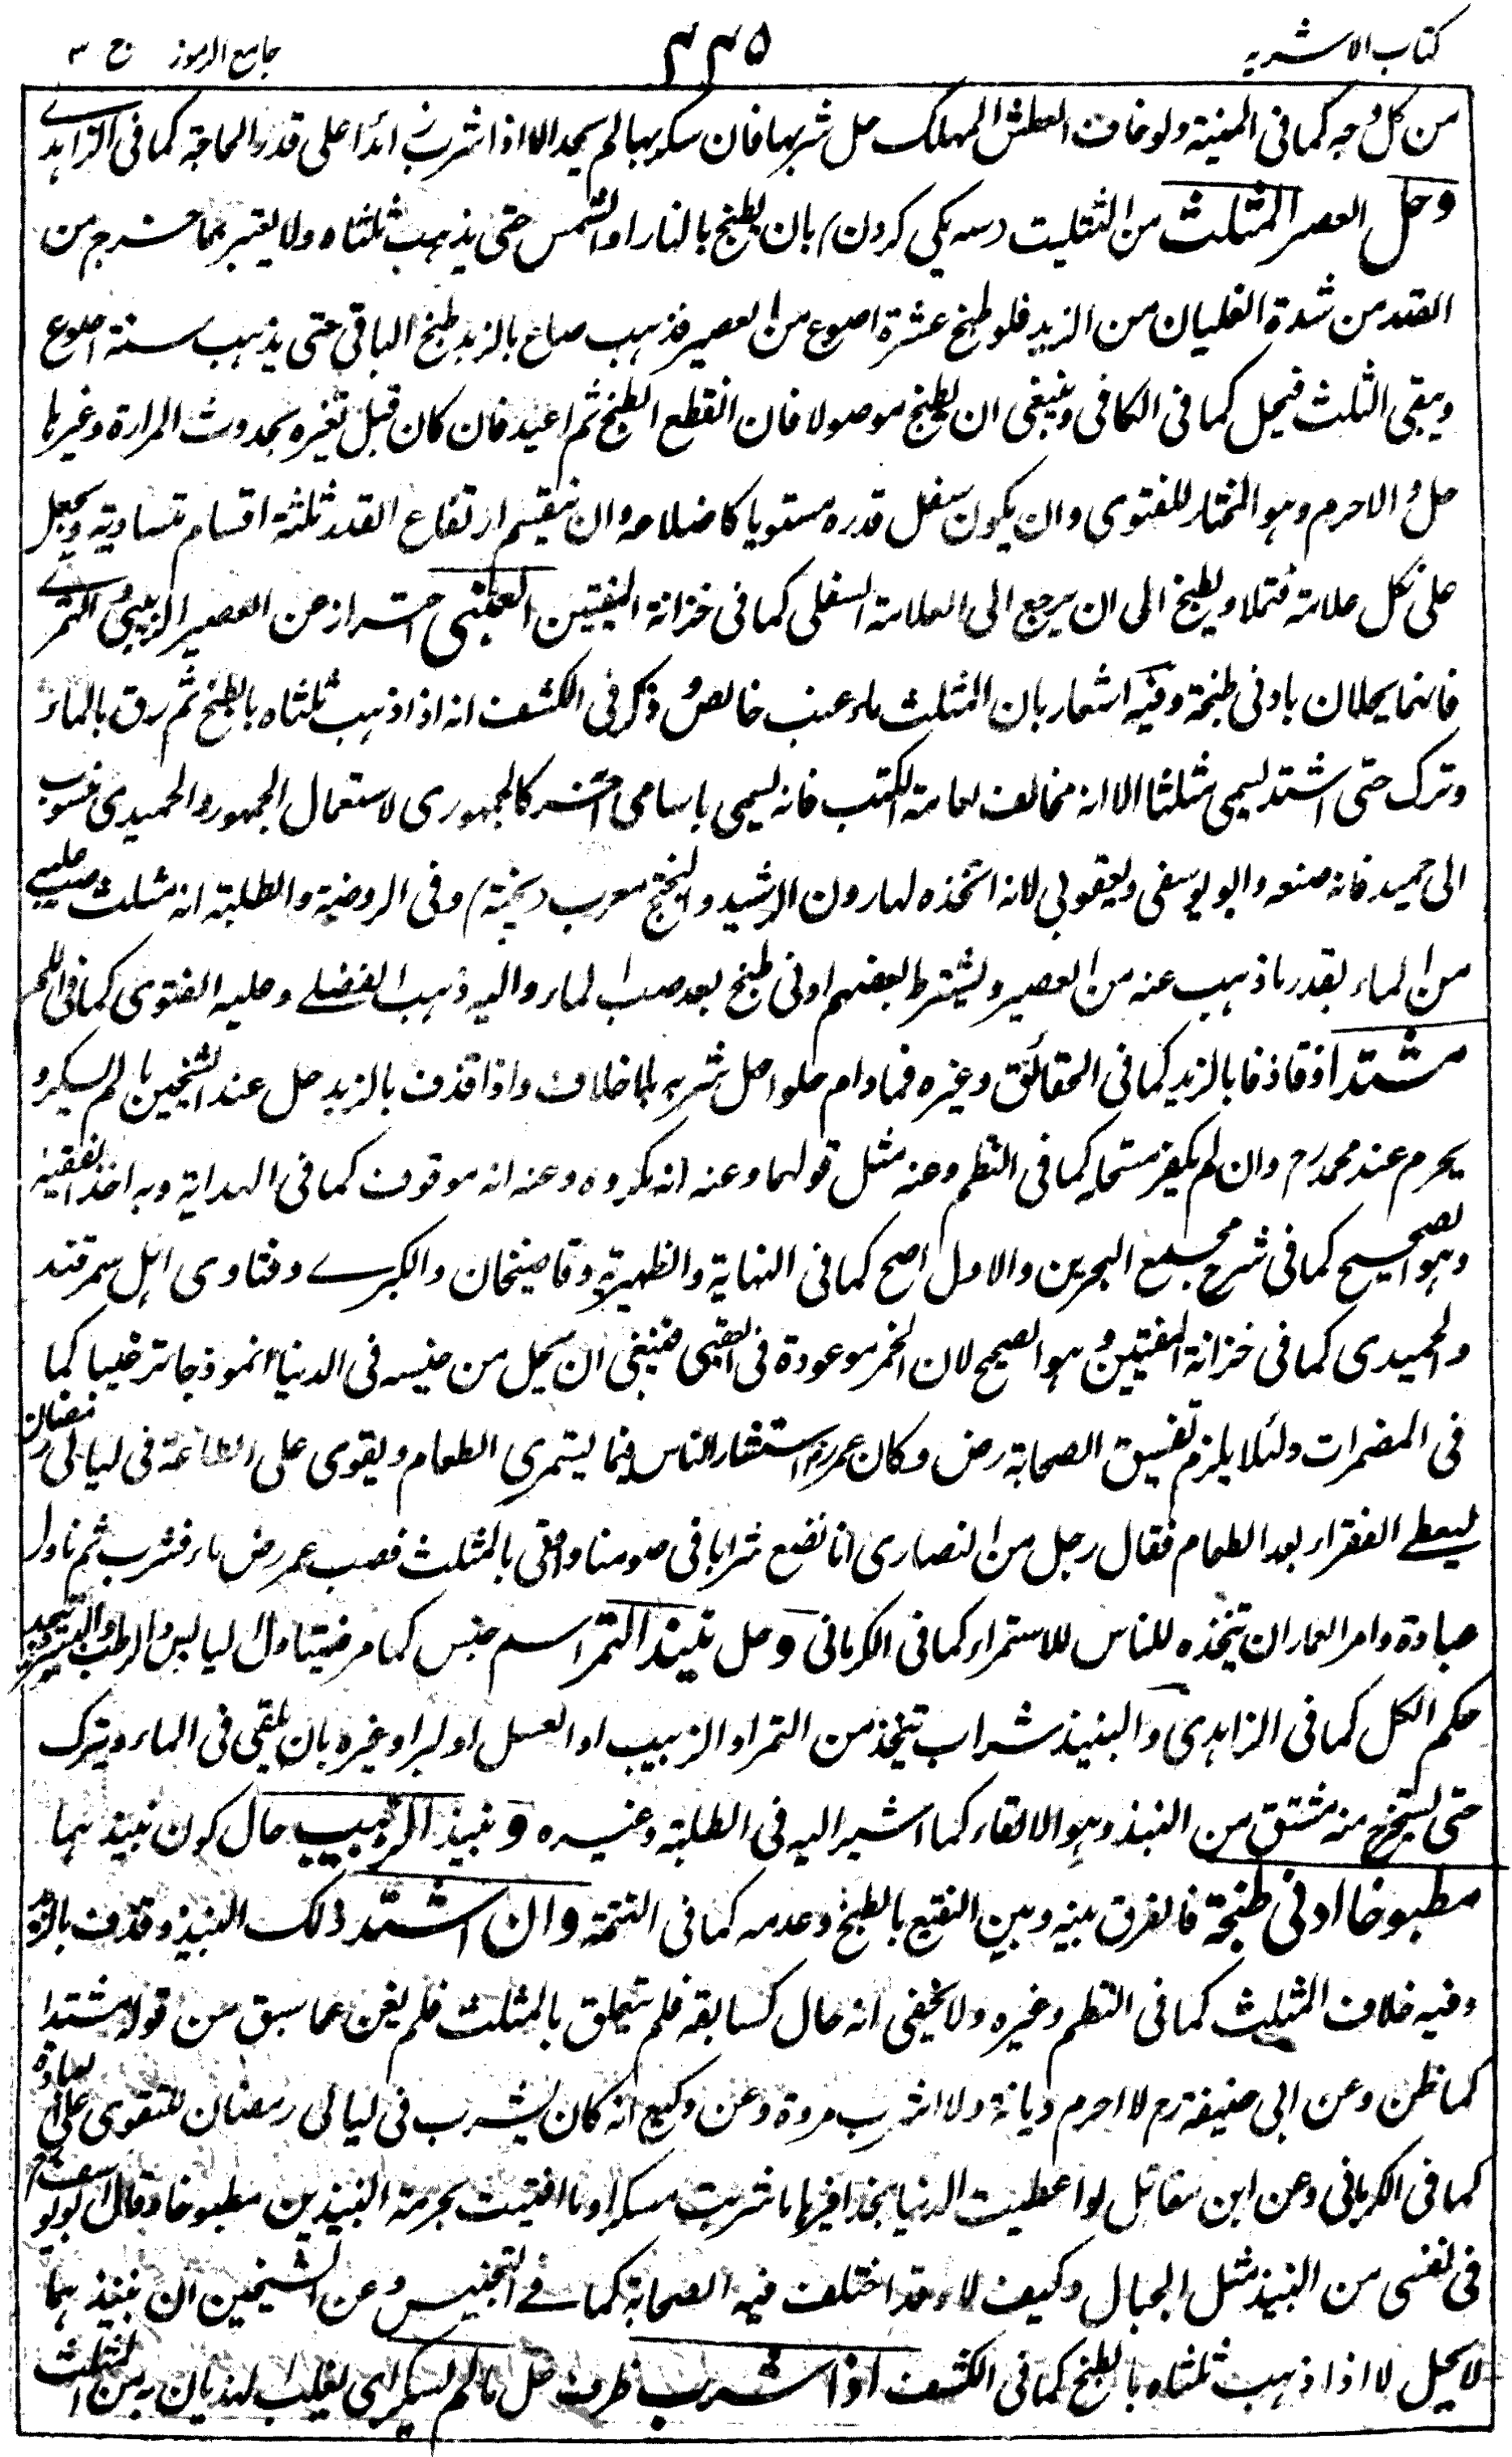 كتاب الاشربه ٣٣٥ جامع الرموز ج ٣
من كل وجه كما فى المنية ولو خاف العطش المهلك حل شربها فان سكر بها لم يحد الا اذا شرب زائدا على قدر الحاجة كما فى الزاهدے
وحل العصير المثلث من التثليث (سه يكى كردن) بان يطبخ بالنار او الشمس حتى يذهب ثلثاه ولا يعتبر بما خرج من
القدر من شدة الغليان من الزبد فلو طبخ عشرة اصوع من العصير فذهب صاع بالزبد طبخ الباقى حتى يذهب ستة اصوع
ويبقى الثلث فيحل كما فى الكافى وينبغى ان يطبخ موصولا فان انقطع الطبخ ثم اعيد فان كان قبل تغيره بحدوث المرارة وغيرها
حل والا حرم وهو المختار للفتوى وان يكون سفل قدره مستويا كاضلاعه وان يقسم ارتفاع القدر ثلثة اقسام متساوية ويجعل
على كل علامة فتملا ويطبخ الى ان يرجع الى العلامة السفلى كما فى خزانة المفتين العنبى احتراز عن العصير الزبيبى والتمرے
فانهما يحلان بادنى طبخة وفيه اشعار بان المثلث ماء عنب خالص وذكر فى الكشف انه اذا ذهب ثلثاه بالطبخ ثم رق بالماء
وترك حتى اشتد يسمى مثلثا الا انه مخالف لعامة الكتب فانه يسمى باسامى اخر كالجمهورى لاستعمال الجمهور والحميدى منسوب
الى حميد فانه صنعه وابو يوسفى ويعقوبى لانه اتخذه لهارون الرشيد والبختج معرب (پخته) وفى الروضة والطلبة انه مثلث صب عليه
من الماء بقدر ما ذهب عنه من العصير ويشترط بعضهم ادنى طبخ بعد صب الماء واليه ذهب الفضلے وعليه الفتوى كما فى
مشتدا وقاذفا بالزبد كما فى الحقائق وغيره فما دام حلوا حل شربه بلا خلاف واذا قذف بالزبد حل عند الشيخين ما لم يسكر و
يحرم عند محمد رح وان لم يكفر مستحله كما فى النظم وعنه مثل قولهما وعنه انه مكروه وعنه انه موقوف كما فى الهداية وبه اخذ الفقيه
وهو الصحيح كما فى شرح مجمع البحرين والاول اصح كما فى النهاية والظهيرية وقاضيخان والكبرے وفتاوى اهل سمرقند
والحميدى كما فى خزانة المفتين وهو الصحيح لان الخمر موعودة فى العقبى فينبغى ان يحل من جنسه فى الدنيا انموذجا ترغيبا كما
فى المضمرات ولئلا يلزم تفسيق الصحابة رض وكان عمر رض استشار الناس فيما يستمرى الطعام ويقوى على الطاعة فى ليالى رمضان
ليعطے الفقراء بعد الطعام فقال رجل من النصارى انا نصنع شرابا فى صومنا واتى بالمثلث فصب عمر رض ماء فشرب ثم ناول
عبادة وامر العمار ان يتخذه للناس للاستمراء كما فى الكرمانى وحل نبيذ التمر اسم جنس كما مر فيتناول اليابس والرطب والبسر ويتحد
حكم الكل كما فى الزاهدى والنبيذ شراب يتخذ من التمر او الزبيب او العسل او البر او غيره بان يلقى فى الماء ويترك
حتى يستخرج منه مشتق من النبذ وهو الالقاء كما اشير اليه فى الطلبة وغيره ونبيذ الزبيب حال كون نبيذهما
مطبوخا ادنى طبخة فالفرق بينه وبين النقيع بالطبخ وعدمه كما فى التتمة وان اشتد ذلك النبيذ وقذف بالزبد
وفيه خلاف المثلث كما فى النظم وغيره ولا يخفى انه حال كسابقه فلم يتعلق بالمثلث فلم يغن عما سبق من قوله مشتدا
كما ظن وعن ابى حنيفة رح لا احرم ديانة ولا اشرب مروة وعن وكيع انه كان يشرب فى ليالى رمضان للتقوى على العبادة
كما فى الكرمانى وعن ابن مقاتل لو اعطيت الدنيا بحذافيرها ما شربت مسكرا وما افتيت بحرمة النبيذين مطبوخا وقال ابو يوسف رح
فى نفسى من النبيذ مثل الجبال وكيف لا وقد اختلف فيه الصحابة كما فے التجنيس وعن الشيخين ان نبيذهما
لا يحل الا اذا ذهب ثلثاه بالطبخ كما فى الكشف اذا شرب ظرف حل ما لم يسكر اى يغلب الهذيان به من المثلث